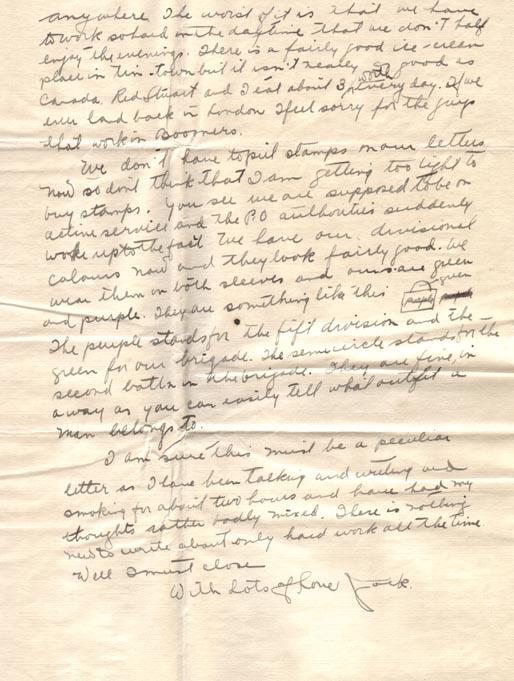 anywhere The worst of it is that we have
to work so hard in the daytime that we don't half
enjoy the evenings. There is a fairly good ice-cream
place in this town but it isn't nearly as good as
Canada. Red Stuart and I eat about 3/ worth every day. If we
ever land back in London I feel sorry for the guys
that work in Boomers.
We don't have to put stamps on our letters
now so don't think that I am getting too tight to
buy stamps. You see we are supposed to be on
active service and the P.O authorities suddenly
woke up to the fact We have our divisional
colours now and they look fairly good. We
wear them on both sleeves and ours are green
and purple. They are something like this purple green
The purple stands for the fift division and the
green for our brigade. The semicircle stands for the
second battn in the brigade. They are fine, in
a way as you can easily tell what outfit a
man belongs to.
I am sure this must be a peculiar
letter as I have been talking and writing and
smoking for about two hours and have had my
thoughts rather badly mixed. There is nothing
new to write about only hard work all the time
Well I must close
With Lots of Love Jack.